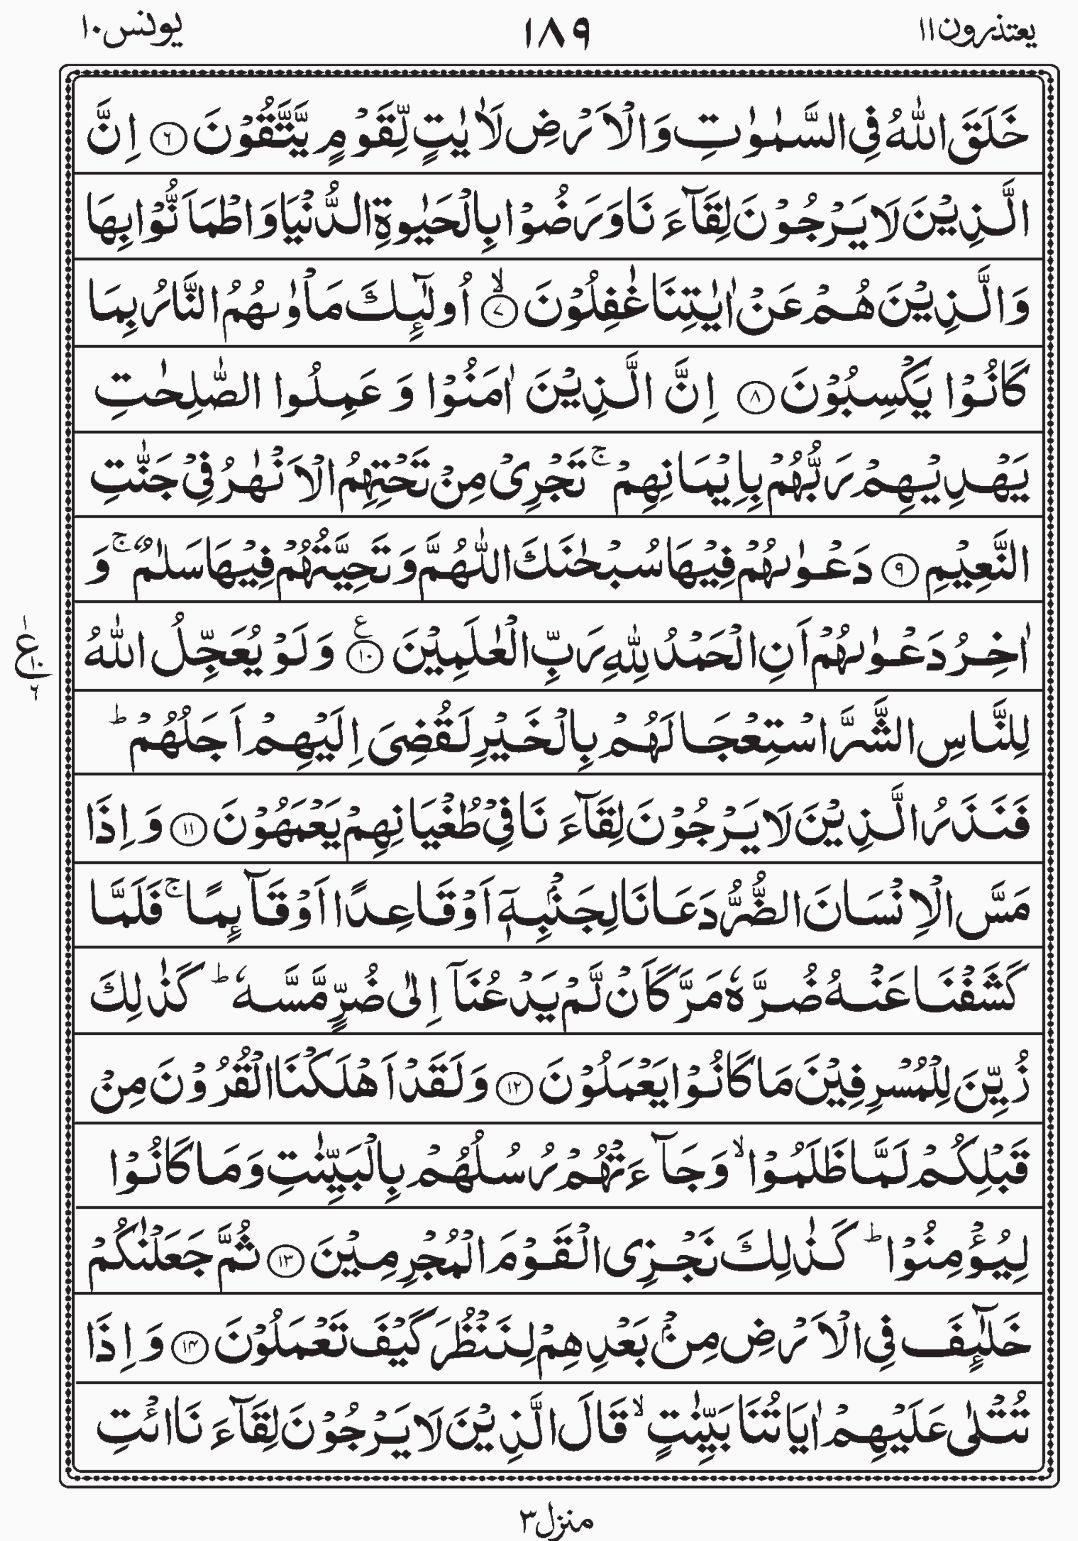 یعتذرون۱۱ ۱۸۹ یونس۱۰
خَلَقَ اللّٰهُ فِی السَّمٰوٰتِ وَالْاَرْضِ لَاٰیٰتٍ لِّقَوْمٍ یَّتَّقُوْنَ ﴿۶﴾ اِنَّ
الَّذِیْنَ لَا یَرْجُوْنَ لِقَآءَنَا وَرَضُوْا بِالْحَیٰوةِ الدُّنْیَا وَاطْمَاَنُّوْا بِهَا
وَالَّذِیْنَ هُمْ عَنْ اٰیٰتِنَا غٰفِلُوْنَ ۙ﴿۷﴾ اُولٰٓئِكَ مَاْوٰىهُمُ النَّارُ بِمَا
كَانُوْا یَكْسِبُوْنَ ﴿۸﴾ اِنَّ الَّذِیْنَ اٰمَنُوْا وَ عَمِلُوا الصّٰلِحٰتِ
یَهْدِیْهِمْ رَبُّهُمْ بِاِیْمَانِهِمْ ۚ تَجْرِیْ مِنْ تَحْتِهِمُ الْاَنْهٰرُ فِیْ جَنّٰتِ
النَّعِیْمِ ﴿۹﴾ دَعْوٰىهُمْ فِیْهَا سُبْحٰنَكَ اللّٰهُمَّ وَ تَحِیَّتُهُمْ فِیْهَا سَلٰمٌ ۚ وَ
اٰخِرُ دَعْوٰىهُمْ اَنِ الْحَمْدُ لِلّٰهِ رَبِّ الْعٰلَمِیْنَ ﴿۱۰﴾ۧ وَلَوْ یُعَجِّلُ اللّٰهُ
ع ۱ ۱۰ ۶
لِلنَّاسِ الشَّرَّ اسْتِعْجَالَهُمْ بِالْخَیْرِ لَقُضِیَ اِلَیْهِمْ اَجَلُهُمْ ؕ
فَنَذَرُ الَّذِیْنَ لَا یَرْجُوْنَ لِقَآءَنَا فِیْ طُغْیَانِهِمْ یَعْمَهُوْنَ ﴿۱۱﴾ وَ اِذَا
مَسَّ الْاِنْسَانَ الضُّرُّ دَعَانَا لِجَنْۢبِهٖۤ اَوْ قَاعِدًا اَوْ قَآئِمًا ۚ فَلَمَّا
كَشَفْنَا عَنْهُ ضُرَّهٗ مَرَّ كَاَنْ لَّمْ یَدْعُنَاۤ اِلٰی ضُرٍّ مَّسَّهٗ ؕ كَذٰلِكَ
زُیِّنَ لِلْمُسْرِفِیْنَ مَا كَانُوْا یَعْمَلُوْنَ ﴿۱۲﴾ وَلَقَدْ اَهْلَكْنَا الْقُرُوْنَ مِنْ
قَبْلِكُمْ لَمَّا ظَلَمُوْا ۙ وَجَآءَتْهُمْ رُسُلُهُمْ بِالْبَیِّنٰتِ وَمَا كَانُوْا
لِیُؤْمِنُوْا ؕ كَذٰلِكَ نَجْزِی الْقَوْمَ الْمُجْرِمِیْنَ ﴿۱۳﴾ ثُمَّ جَعَلْنٰكُمْ
خَلٰٓئِفَ فِی الْاَرْضِ مِنْۢ بَعْدِهِمْ لِنَنْظُرَ كَیْفَ تَعْمَلُوْنَ ﴿۱۴﴾ وَ اِذَا
تُتْلٰی عَلَیْهِمْ اٰیَاتُنَا بَیِّنٰتٍ ۙ قَالَ الَّذِیْنَ لَا یَرْجُوْنَ لِقَآءَنَا ائْتِ
منزل۳